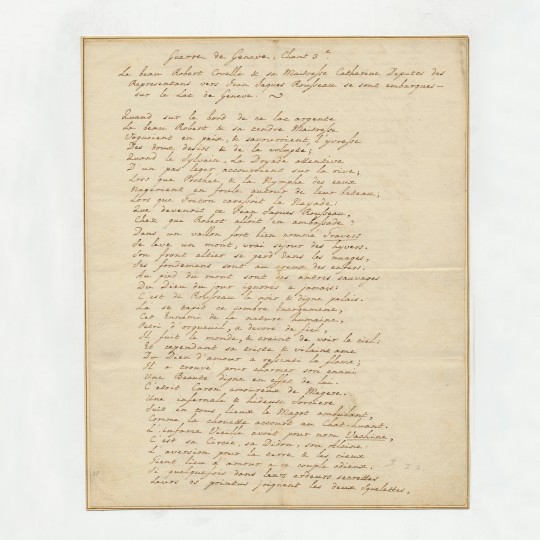 Guerre de Geneve. Chant 3e
Le beau Robert Covelle & sa Maitresse Catharine Deputés des
Representans vers Jean Jaques Rousseau se sont embarqués
sur le Lac de Geneve.
Quand sur le bord de ce lac argenté
Le beau Robert & sa tendre Maitresse
Voguoient en paix, & savouroient l'yvresse
Des doux desirs & de la volupté;
Quand le Sylvain, la Dryade attentive
D'un pas leger accouroient sur la rive;
Lors que Prothée & la Nymphe des eaux
Nageoient en foule autour de leur bateau;
Lors que Triton caressoit la Nayade;
Que devenoit ce Jean Jaques Rousseau,
Chez qui Robert alloit en ambassade?
Dans un vallon fort bien nommé Travers
Se leve un mont, vrai sejour des hyvers.
Son front altier se perd dans les nuages,
Ses fondemens sont au creux des enfers.
Au pied du mont sont des antres sauvages
Du Dieu du jour ignorés a jamais:
C'est de Rousseau le noir & digne palais.
La se tapit ce sombre Energumene,
Cet Ennemi de la nature humaine,
Petri d'orgueil, & devoré de fiel,
Il fuit le monde, & craint de voir le ciel:
Et cependant sa triste & vilaine ame
Du Dieu d'amour a ressenti la flame;
Il a trouvé pour charmer son ennui
Une Beauté digne en effet de lui.
C'etoit Caron amoureux de Megere.
Une infernale & hideuse Sorciere
Suit en tous lieux le Magot ambulant,
Comme la chouette accourt au Chat-huant.
L'infame Vieille avoit pour nom Vachine,
C'est sa Circé, sa Didon, son Alcine.
L'aversion pour la terre & les cieux
Tient lieu d'amour a ce couple odieux.
Si quelquefois dans leurs ardeurs secrettes
Leurs os pointus joignent les deux Squelettes,